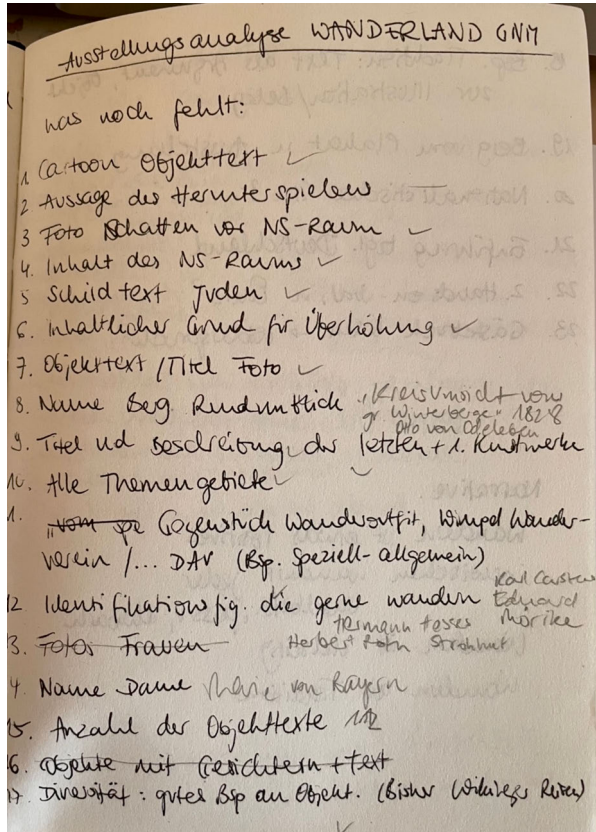 Ausstellungsanalyse WANDERLAND GNM
was noch fehlt:
1 Cartoon Objekttext ✓
2 Aussage des Herunterspielens —
3 Foto Schatten vor NS-Raum ✓
4. Inhalt des NS-Raums ✓
5 Schildtext Juden ✓
6. Inhaltlicher Grund für Überhöhung ✓
7. Objekttext / Titel Foto ✓
8. Name Berg Rundumblick „Kreisumsicht vom
gr. Winterberge" 1828
Otto von Odeleben
9. Titel und Beschreibung der letzten + 1. Kunstwerke
10. Alle Themengebiete ✓
1. Gegenstück Wanderoutfit, Wimpel Wander-
verein / ... DAV (Bsp. speziell-allgemein)
12 Identifikationsfig. die gerne wandern Karl Carstens
Eduard
Mörike
Herbert Roth Strohhut
3. Fotos Frauen
4. Name Dame Marie von Bayern
15. Anzahl der Objekttexte 112
6. Objekte mit Gesichtern + text
17. Diversität: gutes Bsp an Objekt. (Bisher Reisen)